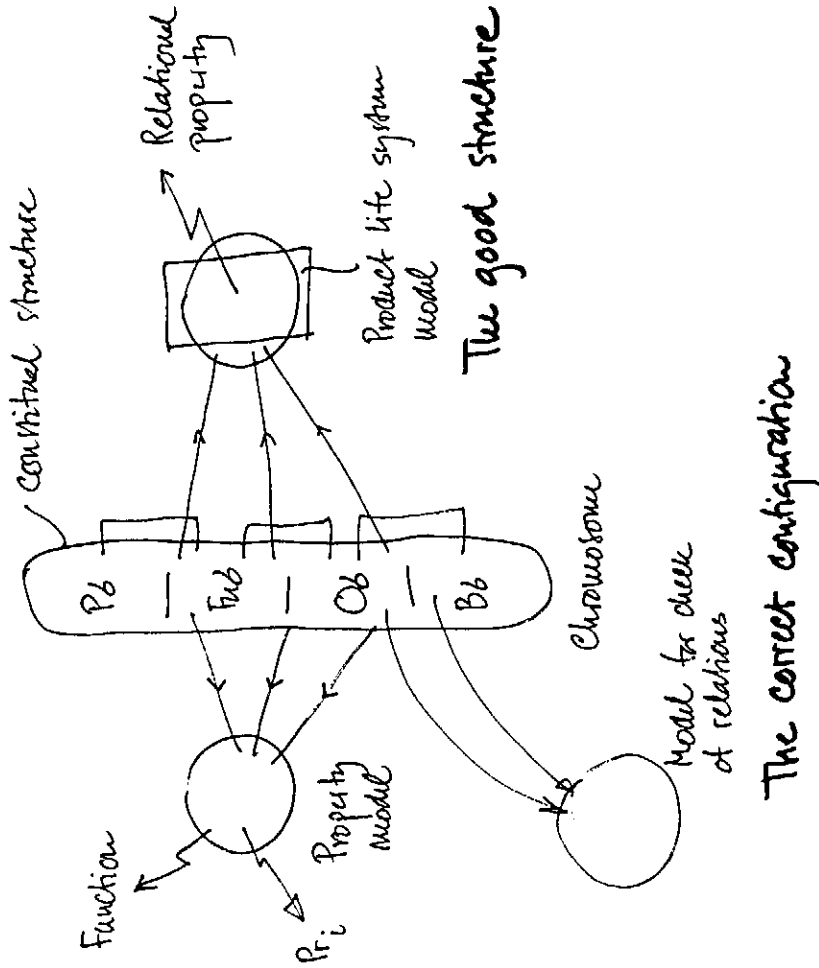 Constitued structure
Relational
property
Product life system
model
The good structure
Pb
Fub
Ob
Bb
Chromosome
Function
Pri
Property
model
Model for check
of relations
The correct configuration